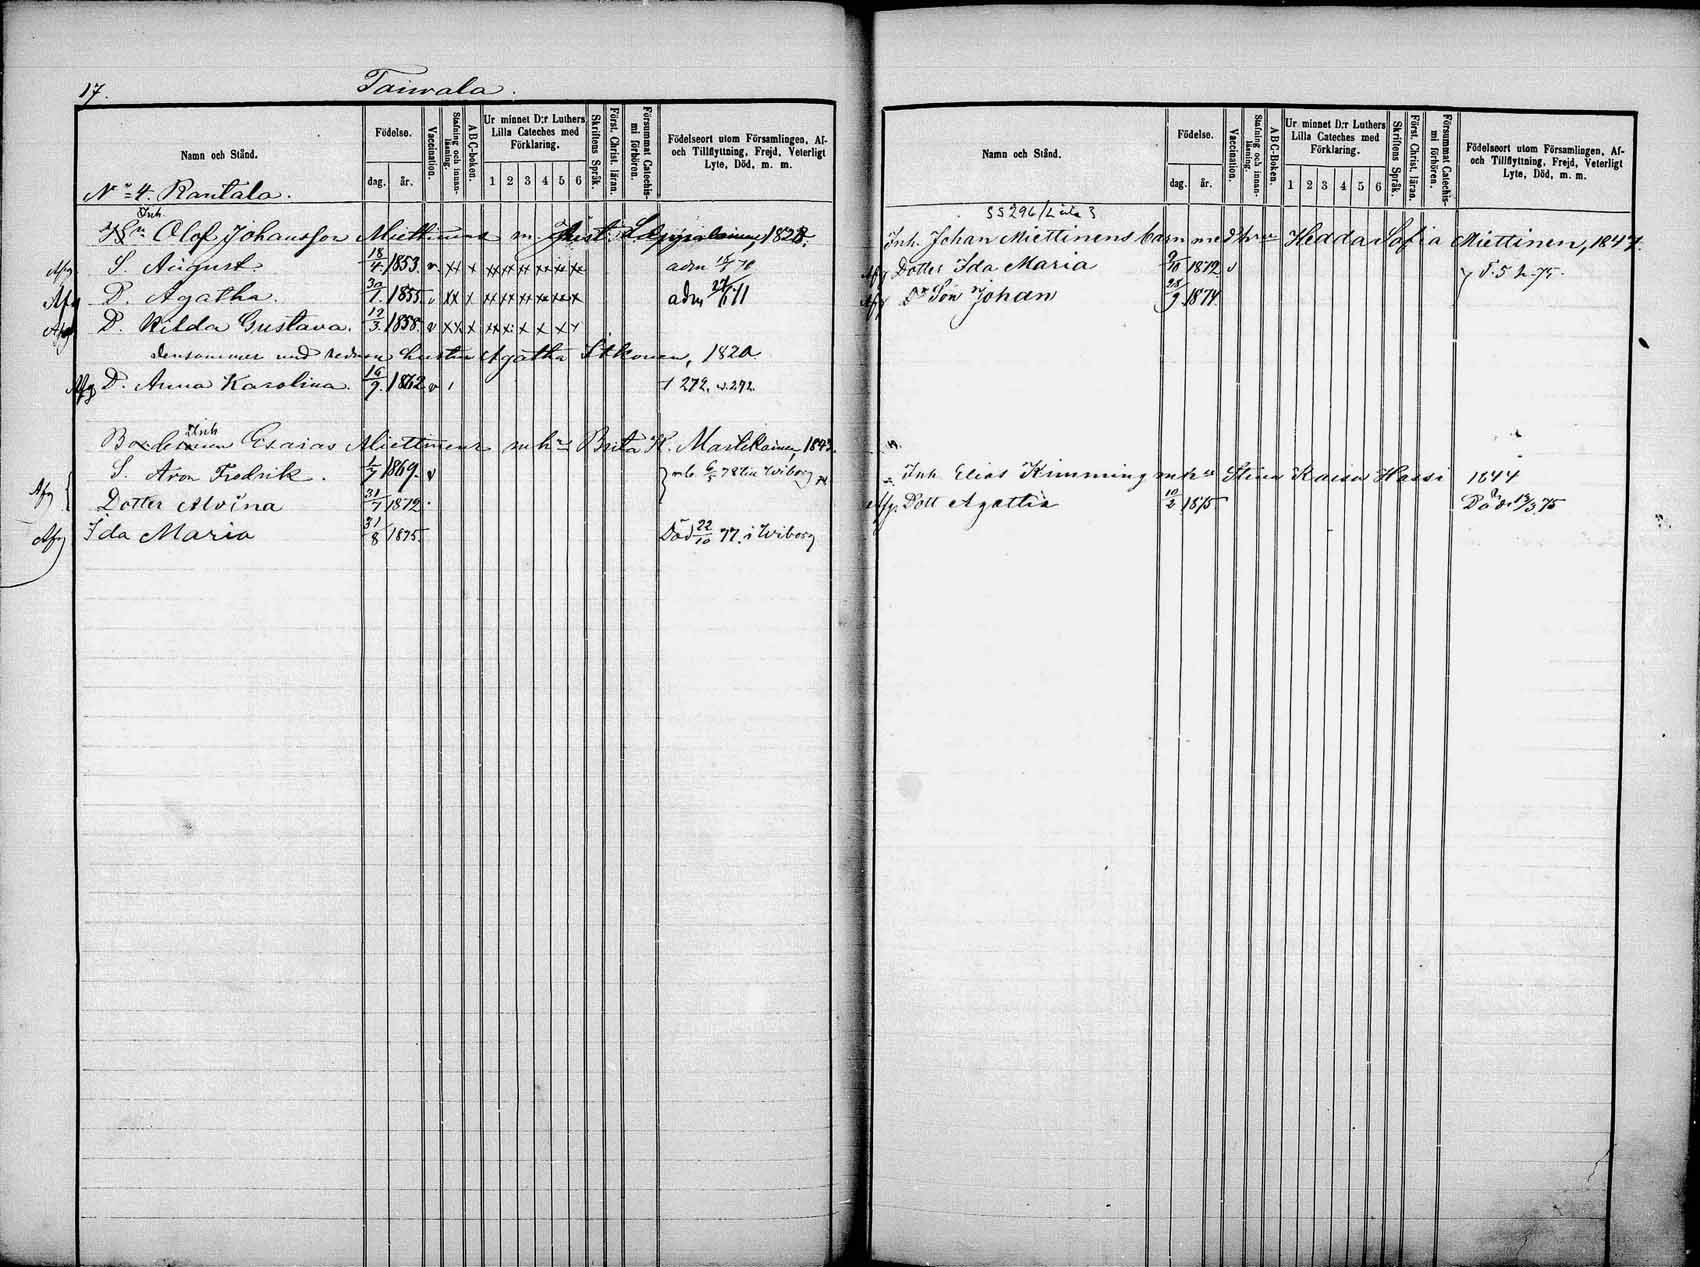 17. Taiwala.
Namn och Stånd.
Födelse.
dag. år.
Vaccination.
Stafning och innanläsning.
ABC-boken.
Ur minnet D:r Luthers Lilla Cateches med Förklaring.
1 2 3 4 5 6
Skriftens Språk.
Först. Christ. läran.
Försummat Catechismi förhören.
Födelseort utom Församlingen, Af- och Tillflyttning, Frejd, Veterligt Lyte, Död, m. m.
N:o 4. Rantala.
Inh.
Olof Johansson Miettinens m 1828.
Afg S. August 18/4 1853. v xx x xx xx xx xx xx xx adm
Afg D. Agatha. 30/1. 1855. v xx x xx xx xx xx xx x adm
Afg D. Hilda Gustava. 12/3. 1858. v xx x xx x x x x
densammes med hustru Agatha Itkonen, 1820
Afg D. Anna Karolina. 16/9. 1862 v
Inh
Esaias Miettinens m hu Brita K. Martikainen, 1843.
S. Aron Fredrik. 1/7 1869. v
Afg { Dotter Alvina 31/7 1872.
Afg Ida Maria 31/8 1875. Död 22/10 77. i Wiborg
Namn och Stånd.
Födelse.
dag. år.
Vaccination.
Stafning och innanläsning.
ABC-Boken.
Ur minnet D:r Luthers Lilla Cateches med Förklaring.
1 2 3 4 5 6
Skriftens Språk.
Först. Christ. läran.
Försummat Catechismi förhören.
Födelseort utom Församlingen, Af- och Tillflyttning, Frejd, Veterligt Lyte, Död, m. m.
Inh. Johan Miettinens barn med hru Hedda Sofia Miettinen, 1847.
Afg Dotter Ida Maria 9/10 1872 v
Afg Son Johan 28/9 1874.
Inh. Elias Kimming m hu Stina Kaisa Hassi 1844
Afg. Dott Agatha 10/2 1875